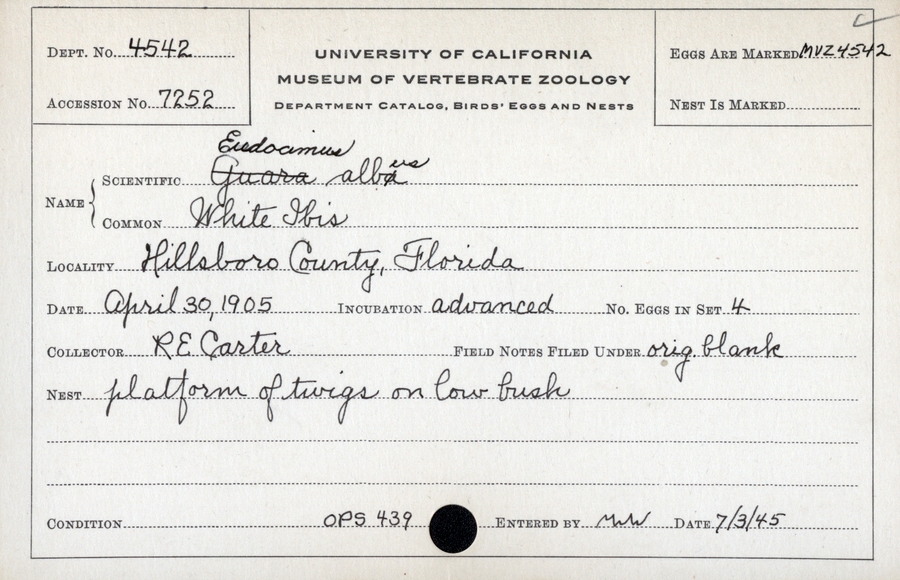 DEPT. No. 4542
UNIVERSITY OF CALIFORNIA
MUSEUM OF VERTEBRATE ZOOLOGY
DEPARTMENT CATALOG, BIRDS' EGGS AND NESTS
EGGS ARE MARKED MVZ 4542
ACCESSION No. 7252
NEST IS MARKED
Eudocimus
NAME SCIENTIFIC Guara albus
COMMON White Ibis
LOCALITY Hillsboro County, Florida
DATE April 30, 1905 INCUBATION advanced No. EGGS IN SET 4
COLLECTOR R E Carter FIELD NOTES FILED UNDER orig. blank
NEST platform of twigs on low bush
CONDITION OPS 439 ENTERED BY DATE 7/3/45